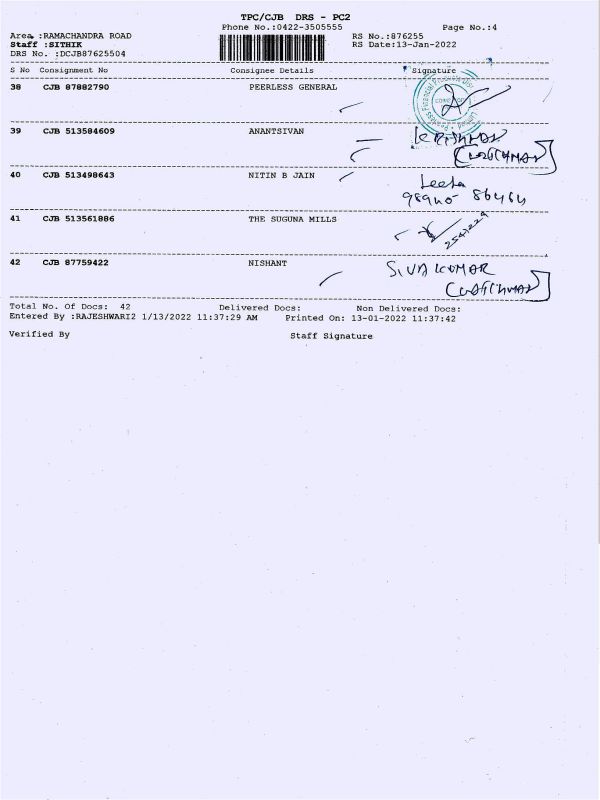 TPC/CJB DRS - PC2
Phone No.:0422-3505555 Page No.:4
Area :RAMACHANDRA ROAD RS No.:876255
Staff :SITHIK RS Date:13-Jan-2022
DRS No. :DCJB87625504
S No Consignment No Consignee Details Signature
38 CJB 87882790 PEERLESS GENERAL
39 CJB 513584609 ANANTSIVAN KRISHNAN
(WATCHMAN)
40 CJB 513498643 NITIN B JAIN Leela
98940- 86464
41 CJB 513561886 THE SUGUNA MILLS 2541229
42 CJB 87759422 NISHANT SIVA KUMAR
(WATCHMAN)
Total No. Of Docs: 42 Delivered Docs: Non Delivered Docs:
Entered By :RAJESHWARI2 1/13/2022 11:37:29 AM Printed On: 13-01-2022 11:37:42
Verified By Staff Signature